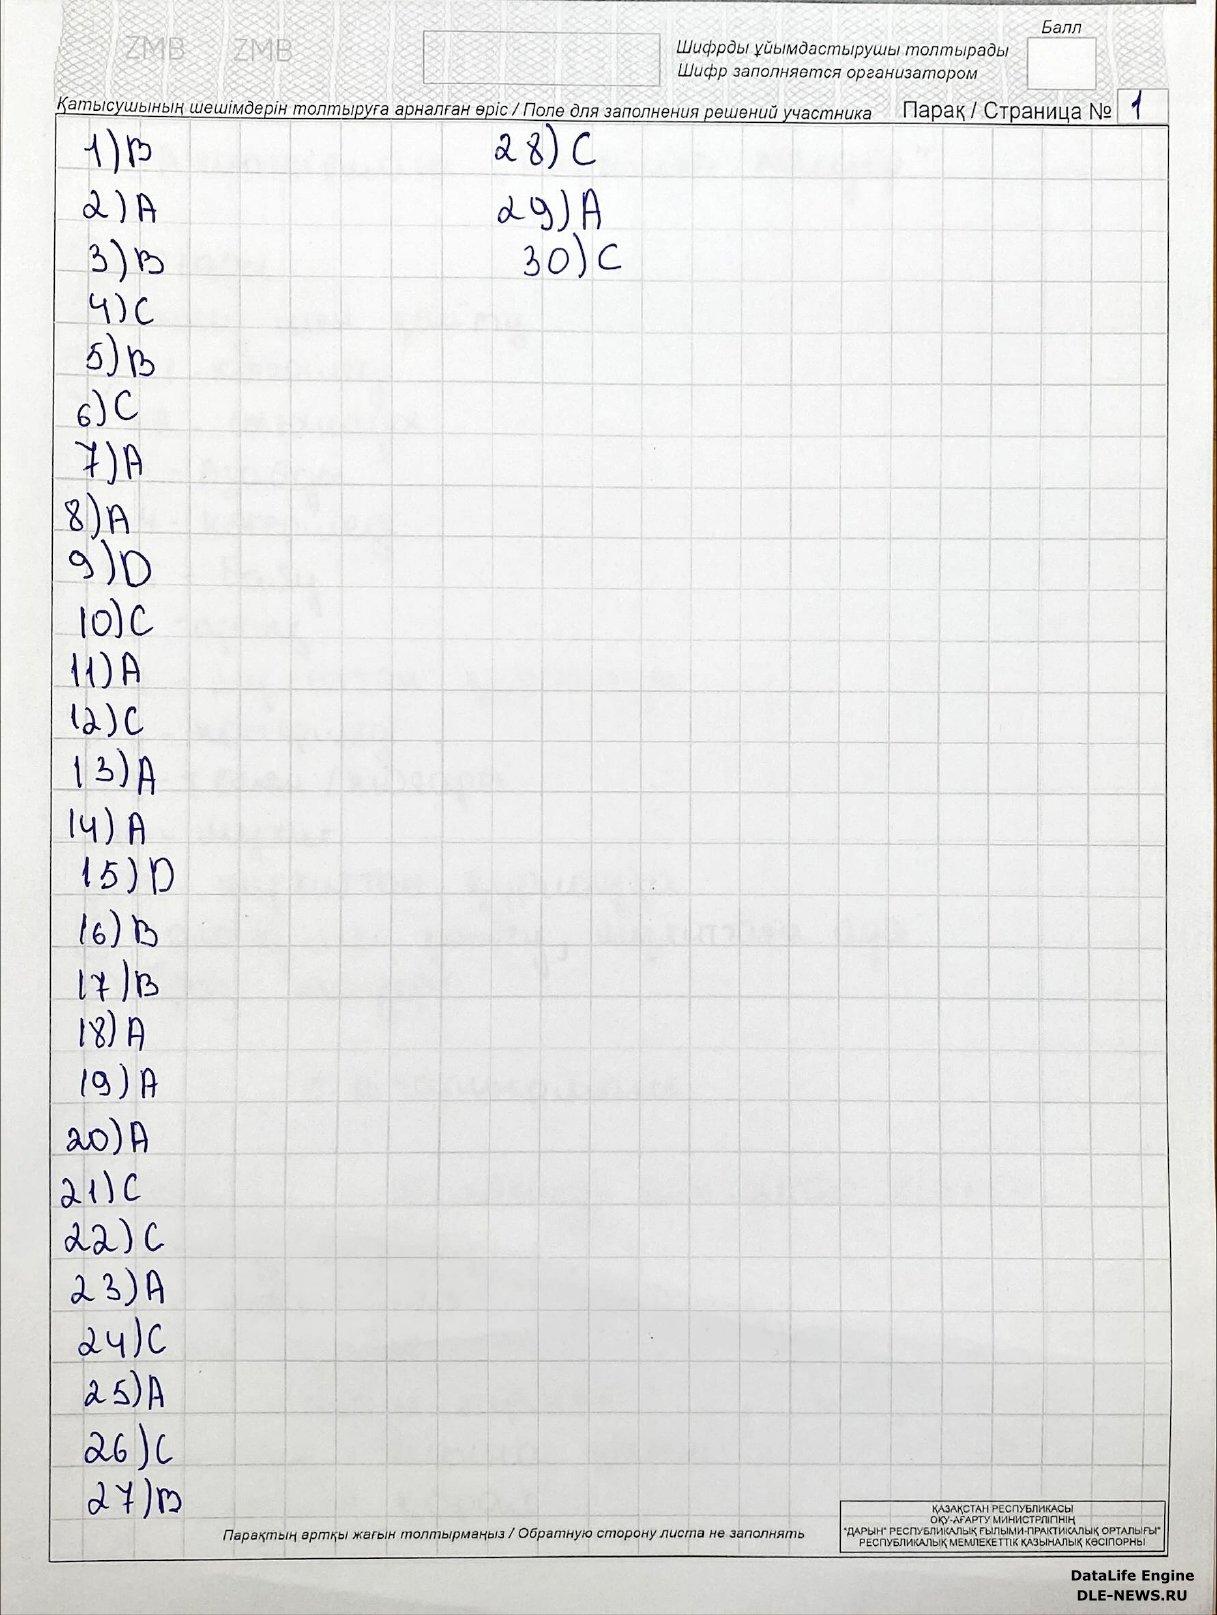 ZMB ZMB
Балл
Шифрды ұйымдастырушы толтырады
Шифр заполняется организатором
Қатысушының шешімдерін толтыруға арналған өріс / Поле для заполнения решений участника
Парақ / Страница № 1
1) B
2) A
3) B
4) C
5) B
6) C
7) A
8) A
9) D
10) C
11) A
12) C
13) A
14) A
15) D
16) B
17) B
18) A
19) A
20) A
21) C
22) C
23) A
24) C
25) A
26) C
27) B
28) C
29) A
30) C
Парақтың артқы жағын толтырмаңыз / Обратную сторону листа не заполнять
ҚАЗАҚСТАН РЕСПУБЛИКАСЫ
ОҚУ-АҒАРТУ МИНИСТРЛІГІНІҢ
"ДАРЫН" РЕСПУБЛИКАЛЫҚ ҒЫЛЫМИ-ПРАКТИКАЛЫҚ ОРТАЛЫҒЫ"
РЕСПУБЛИКАЛЫҚ МЕМЛЕКЕТТІК ҚАЗЫНАЛЫҚ КӘСІПОРНЫ
DataLife Engine
DLE-NEWS.RU